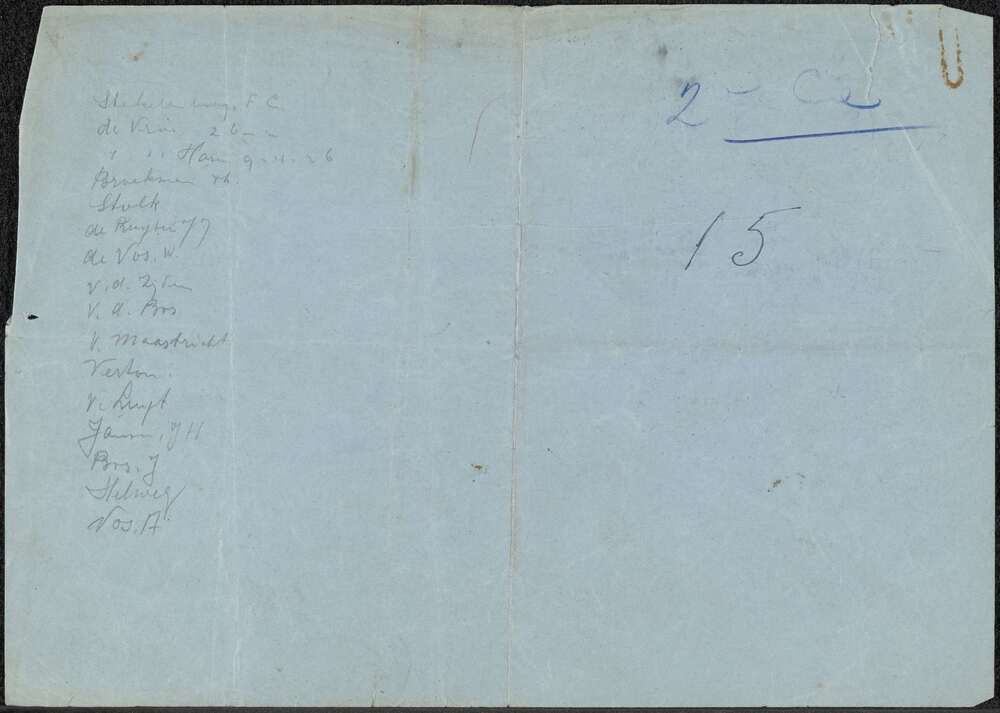 Stekelenburg, F C.
de Vries 26
" " Ham 9-4-26
Broekman
Stolk
de Ruyter J J
de Vos. W.
v. d. Zijden
v. d. Bos
v. Maastricht
Verton.
v. Luyt
Jansen, J H
Bos. J
Helweg
Vos. A
2e Cie
15